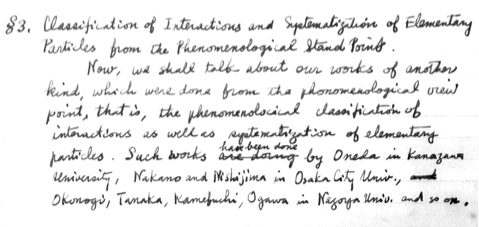 §3. Classification of Interactions and Systematization of Elementary
Particles from the Phenomenological Stand Point.
Now, we shall talk about our works of another
kind, which were done from the phonomenological view
point, that is, the phenomenological classification of
interactions as well as systematization of elementary
particles. Such works are doing have been done by Oneda in Kanazawa
University, Nakano and Nishijima in Osaka City Univ., and
Okonogi, Tanaka, Kamefuchi, Ogawa in Nagoya Univ. and so on.